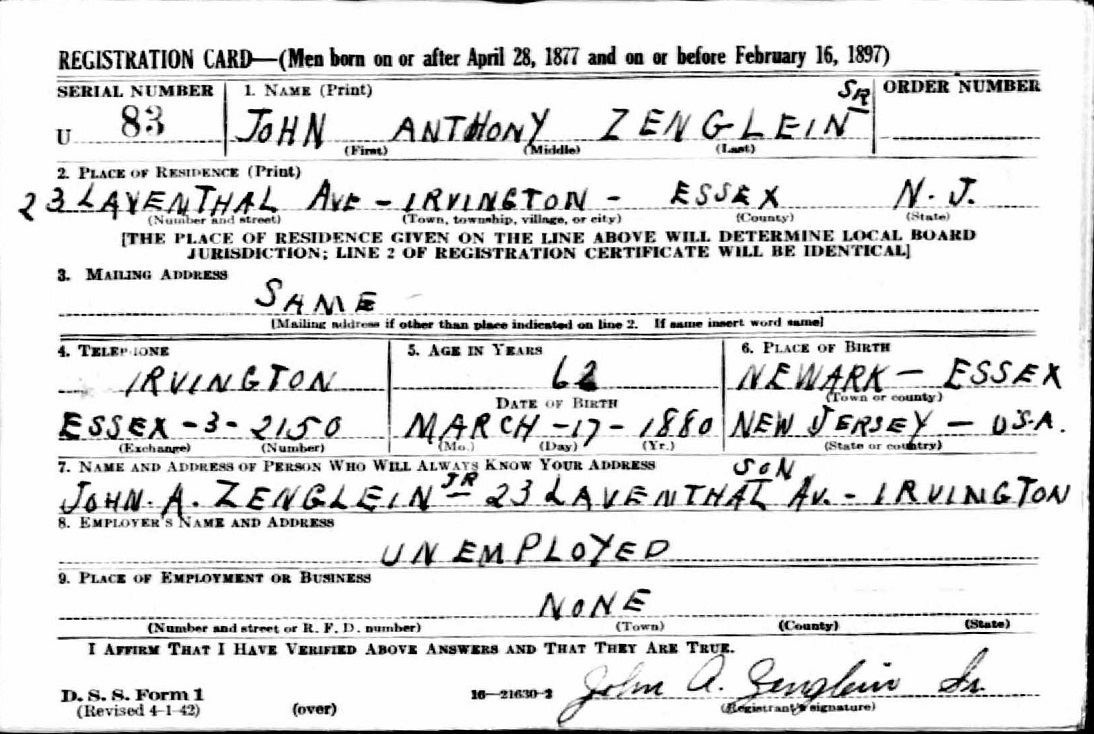 REGISTRATION CARD—(Men born on or after April 28, 1877 and on or before February 16, 1897)
SERIAL NUMBER 1. NAME (Print) ORDER NUMBER
U 83 JOHN ANTHONY ZENGLEIN SR
(First) (Middle) (Last)
2. PLACE OF RESIDENCE (Print)
23 LAVENTHAL AVE - IRVINGTON - ESSEX N. J.
(Number and street) (Town, township, village, or city) (County) (State)
[THE PLACE OF RESIDENCE GIVEN ON THE LINE ABOVE WILL DETERMINE LOCAL BOARD
JURISDICTION; LINE 2 OF REGISTRATION CERTIFICATE WILL BE IDENTICAL]
3. MAILING ADDRESS
SAME
[Mailing address if other than place indicated on line 2. If same insert word same]
4. TELEPHONE 5. AGE IN YEARS 6. PLACE OF BIRTH
IRVINGTON 62 NEWARK - ESSEX
DATE OF BIRTH (Town or county)
ESSEX - 3 - 2150 MARCH - 17 - 1880 NEW JERSEY - U.S.A.
(Exchange) (Number) (Mo.) (Day) (Yr.) (State or country)
7. NAME AND ADDRESS OF PERSON WHO WILL ALWAYS KNOW YOUR ADDRESS SON
JOHN. A. ZENGLEIN JR 23 LAVENTHAL AV. - IRVINGTON
8. EMPLOYER'S NAME AND ADDRESS
UNEMPLOYED
9. PLACE OF EMPLOYMENT OR BUSINESS
NONE
(Number and street or R. F. D. number) (Town) (County) (State)
I AFFIRM THAT I HAVE VERIFIED ABOVE ANSWERS AND THAT THEY ARE TRUE.
D. S. S. Form 1 16—21630-2 John A. Zenglein Sr.
(Revised 4-1-42) (over) (Registrant's signature)